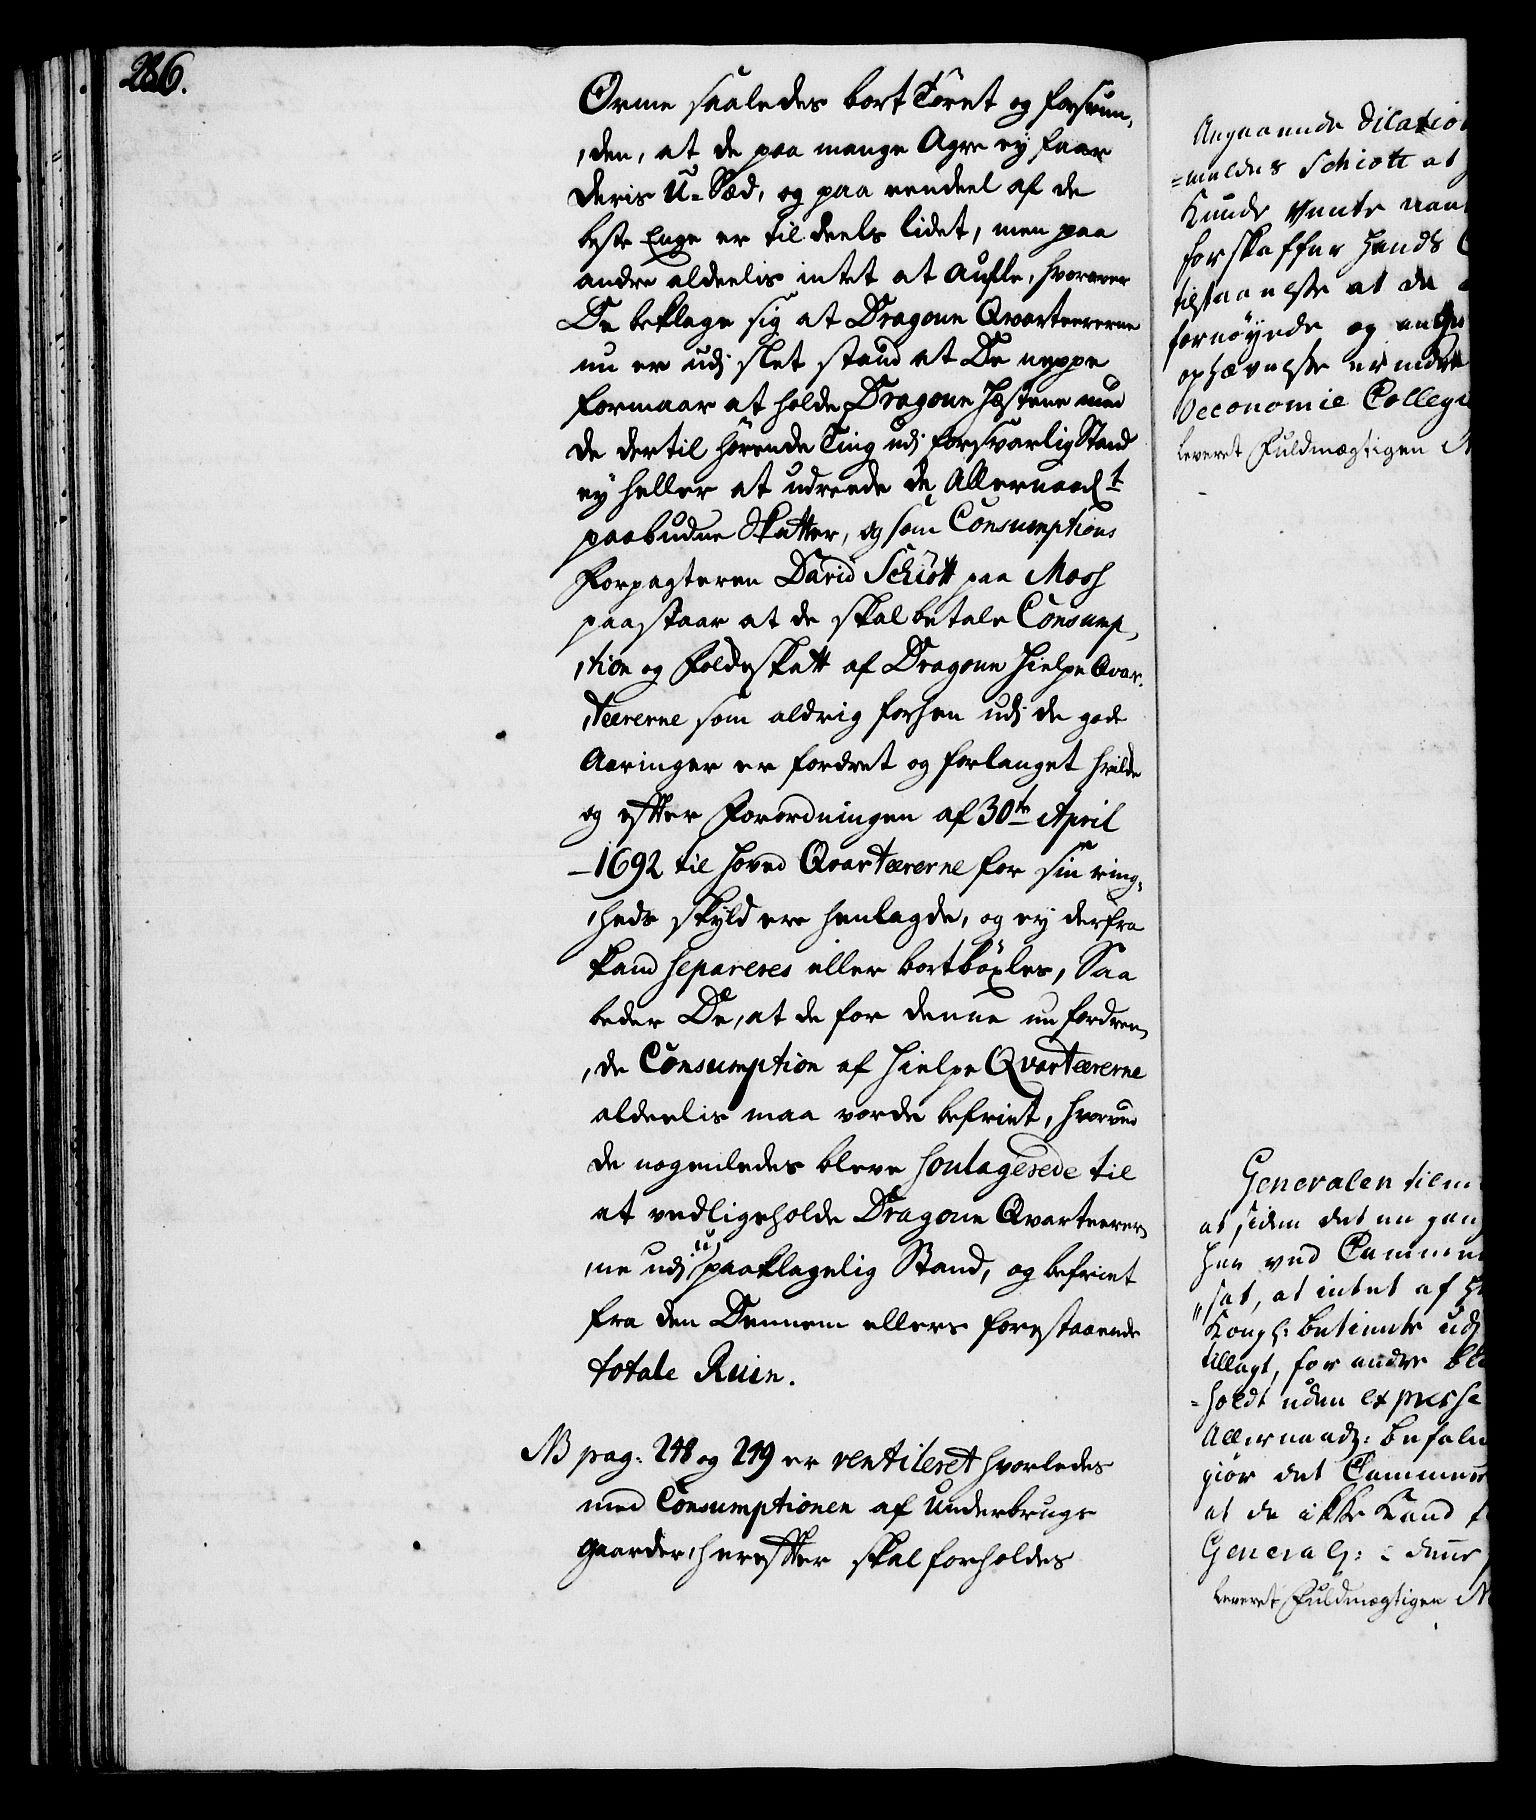 286.
Orme saaledes bort Tæret og forsvun,
,den, at de paa mange Agre ey faar
deris U-Sæd, og paa eendeel af de
beste Enge er til deels lidet, men paa
andre aldeelis intet at aufle, hvorover
De beklage sig at Dragoun Qvarteererne
nu er udj slet stand at De neppe
formaar at holde Dragoun Hæstene med
de dertil hørende Ting udj forsvarlig Stand
ey heller at udreede de Allernaadst
paabudne Skatter, og som Consumptions
Forpagteren David Schiøtt paa Moss
paastaar at de skal betale Consump,
,tion og Foldeskatt af Dragoun Hielpe Qvar,
,teererne som aldrig forhen udj de gode
Aaringer er fordret og forlanget hvilke
og efter Forordningen af 30te April
1692 til Hoved Qvarteererne for sin ring,
,heds skyld ere henlagde, og ey derfra
kand separeres eller bortbøxles, Saa
beder De, at de for denne nu fordren,
,de Consumption af Hielpe Qvarteererne
aldeelis maa vorde befriet, hvorved
de nogenledes bleve soulagerede til
at vedligeholde Dragoun Qvarteerer,
,ne udj upaaklagelig Stand, og befriet
fra den Dennem ellers forestaaende
totale Ruin.
NB pag: 248 og 249 er ventileret hvorledes
med Consumptionen af Underbrugs
gaarder, herefter skal forholdes
Angaaende Dilation
=meldes Schiøtt at
Kunde vente
forskaffer hands
tilstaaelse at de
fornøyede og
ophævelse
Oeconomie Collegi
Leveret Fuldmægtigen
Generalen
at siden det en gang
her ved
sat, at intet af
Kongl: betiente udj
tillagt, for andre
=holdt uden expresse
Allernaadst: befaln
giør det
at de ikke Kand
General:
leveret Fuldmægtigen